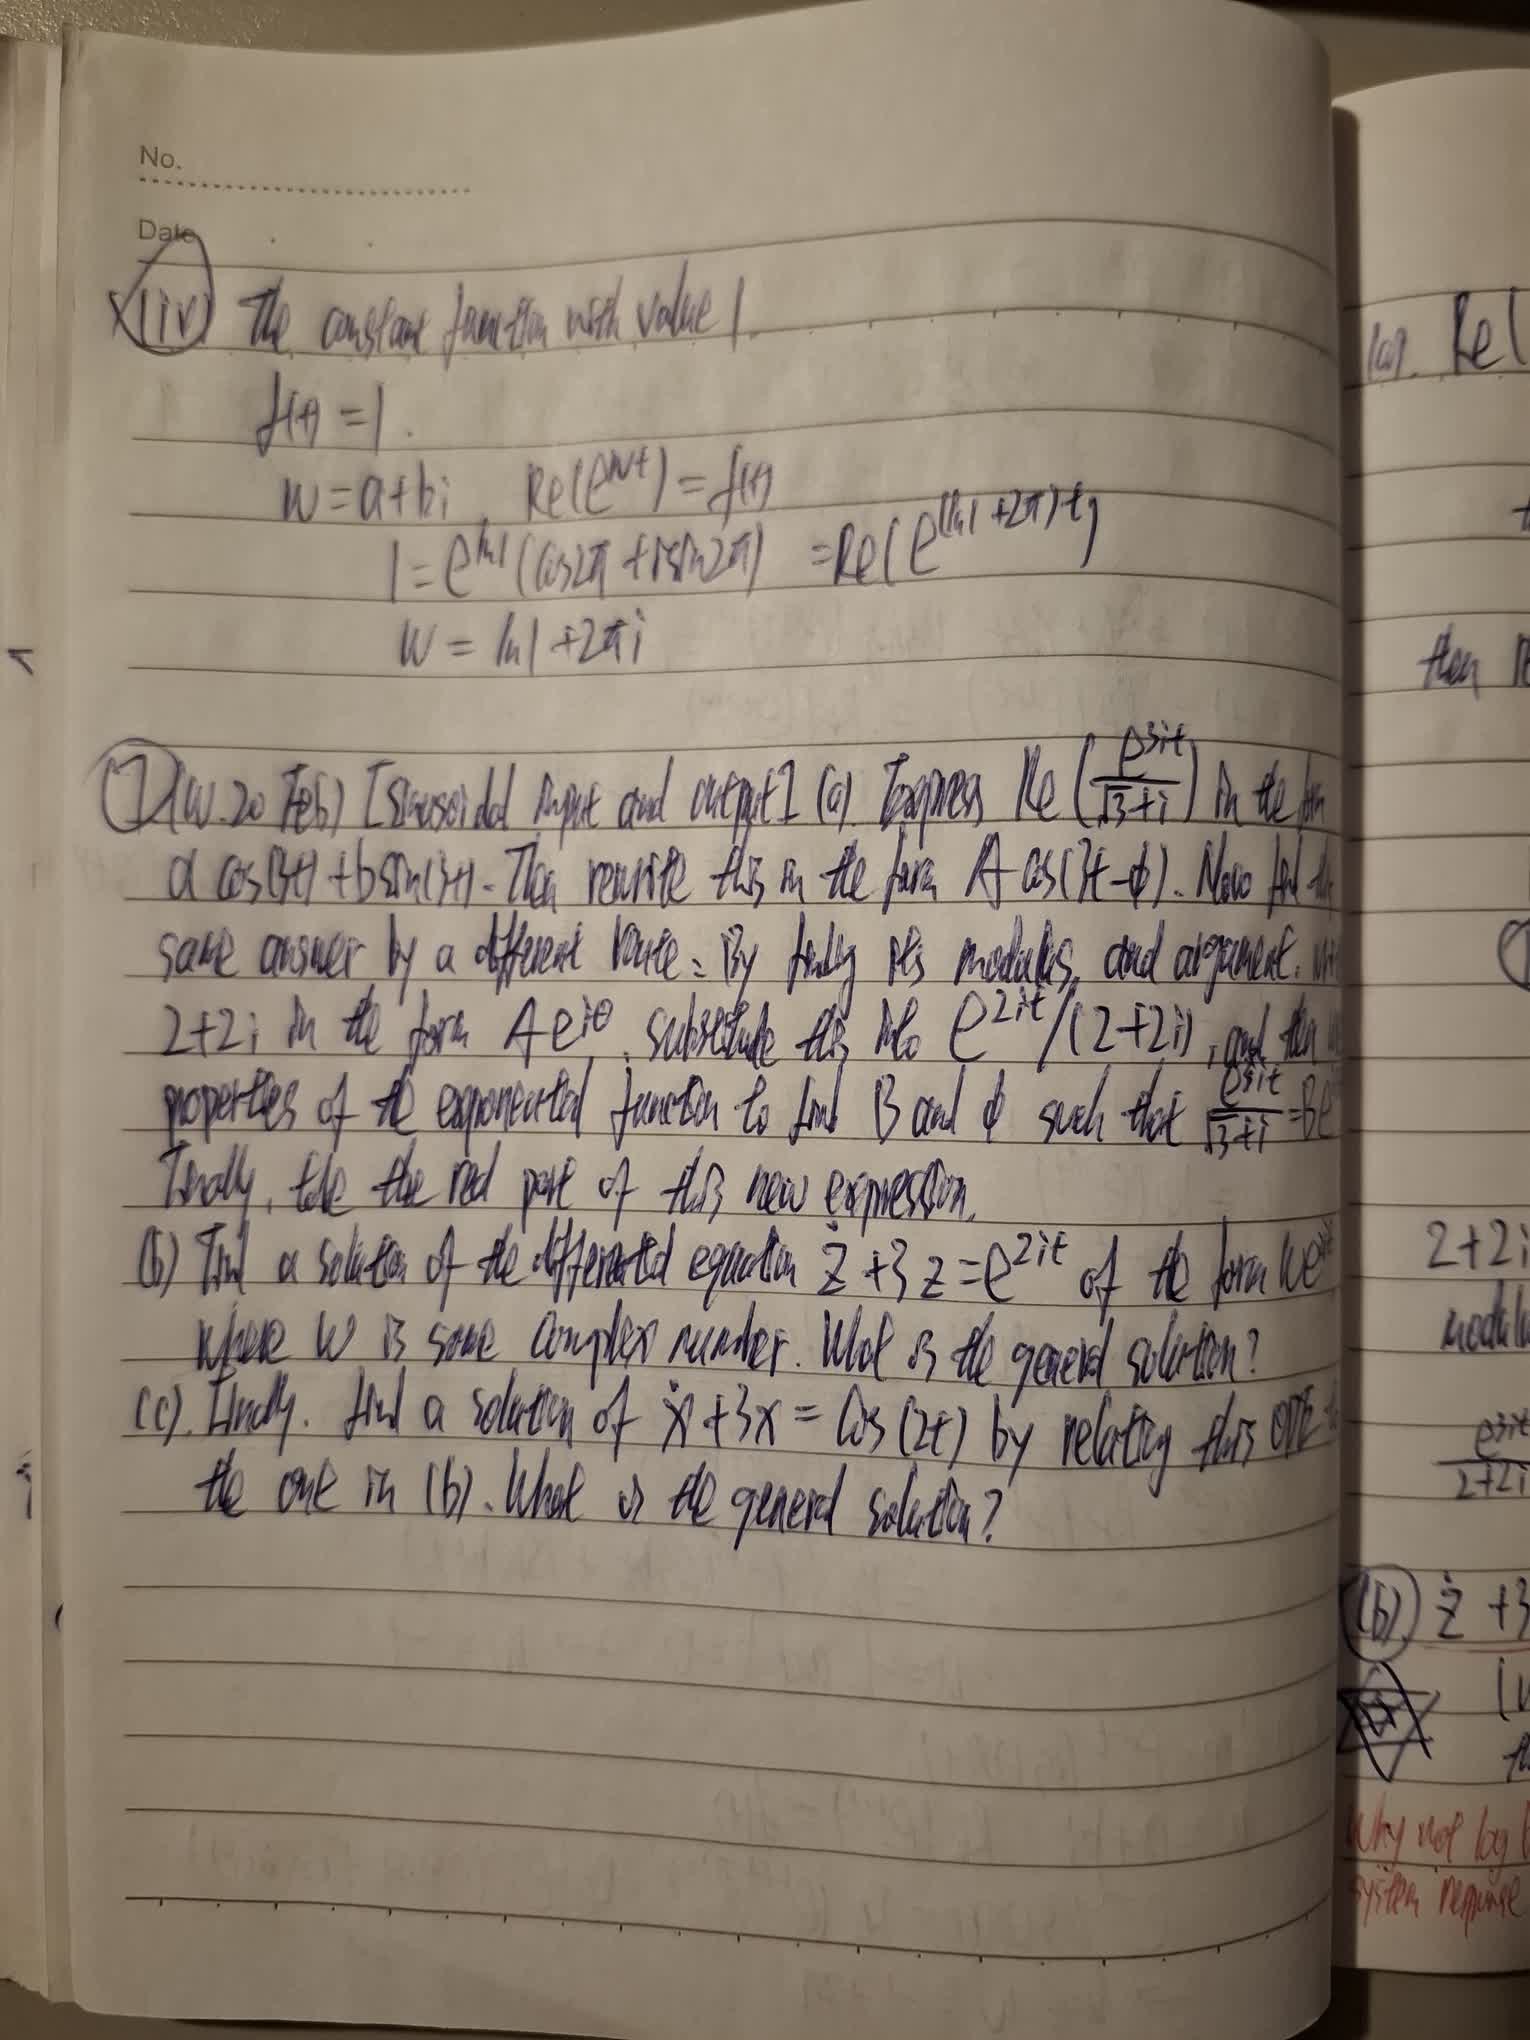 No.
Date
(iv) The constant function with value 1.
f(t) = 1.
w = a+bi, Re(e^{wt}) = f(t)
1 = e^{ln1}(cos2π + isin2π) = Re(e^{(ln1+2π)t})
w = ln1 + 2πi
7 (W. 20 Feb) [Sinusoidal input and output] (a). Express Re(e^{3it}/(√3+i)) in the form
a cos(3t) + b sin(3t). Then rewrite this in the form A cos(3t-ϕ). Now find the
same answer by a different route: By finding its modulus and argument,
2+2i in the form Ae^{iθ}, substitute this into e^{2it}/(2+2i), and then
properties of the exponential function to find B and ϕ such that e^{3it}/(√3+i) = Be
Finally, take the real part of this new expression.
(b) Find a solution of the differential equation ż + 3z = e^{2it} of the form we
where w is some complex number. What is the general solution?
(c). Finally. find a solution of ẋ + 3x = cos(2t) by relating this ODE
the one in (b). What is the general solution?
(a). Re(
then
2+2i
e^{3it}/(2+2i)
(b). ż + 3
Why not log
system response